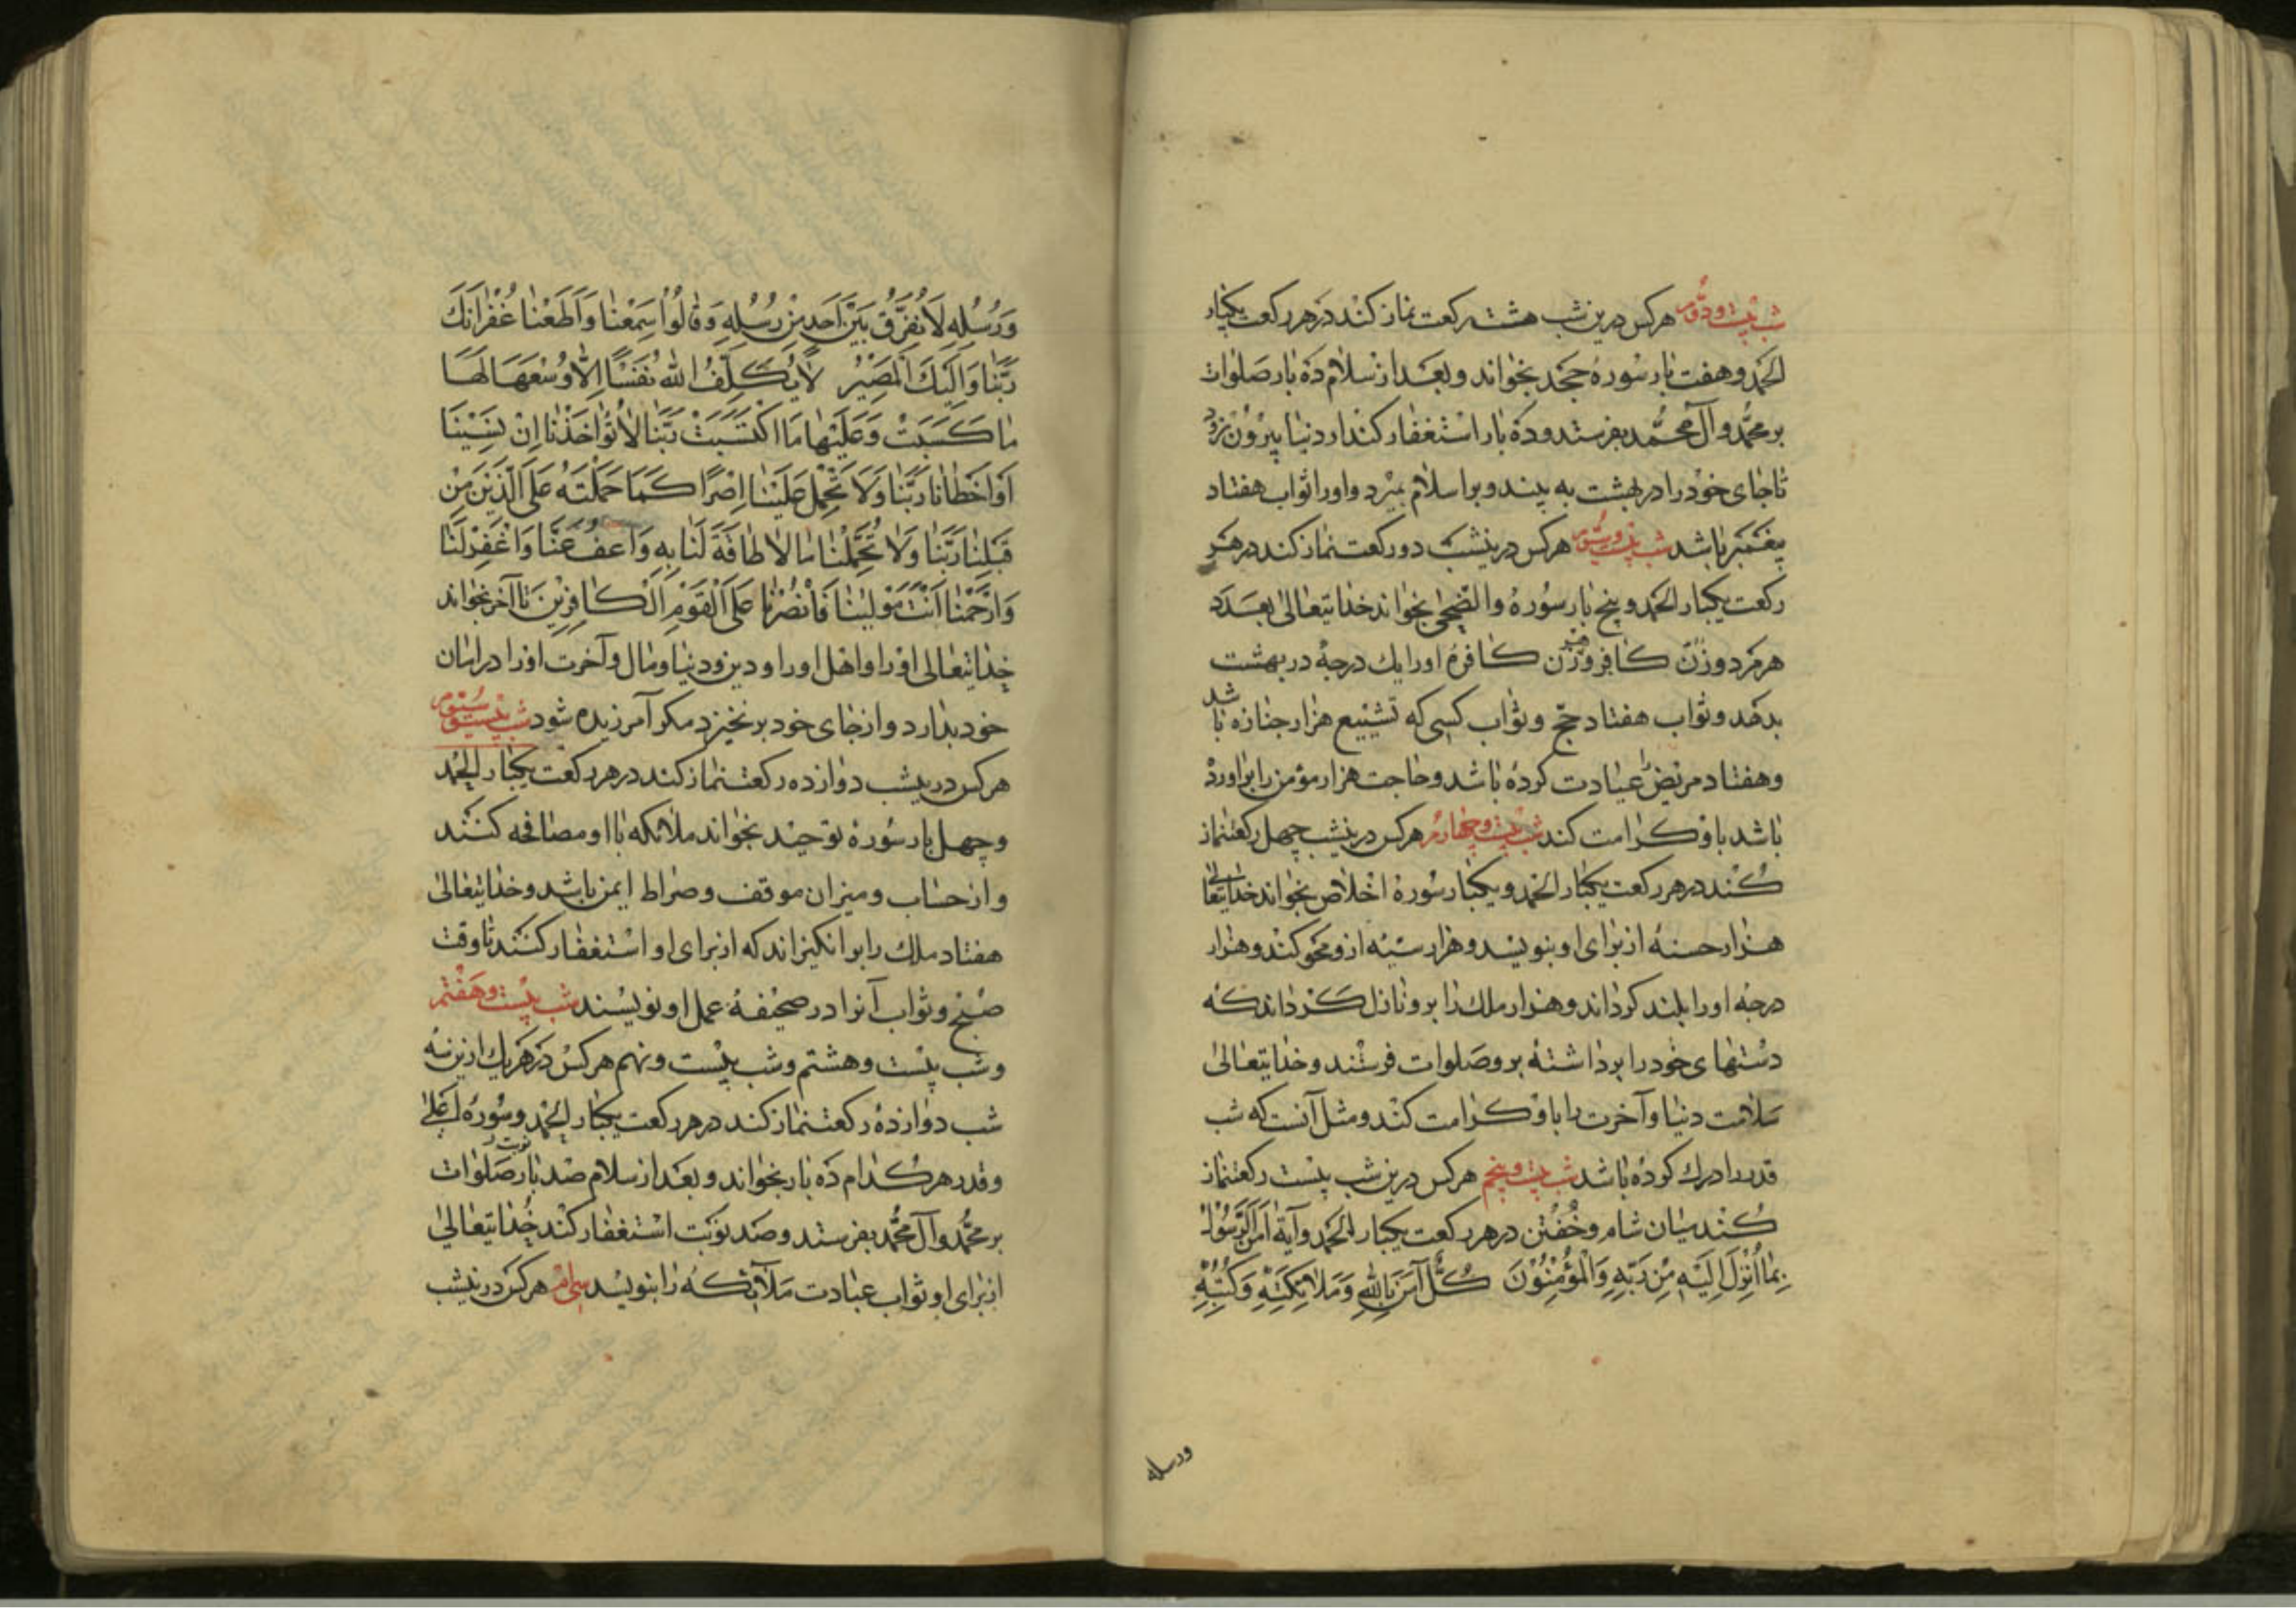 شب بیست و دوم هرکس درین شب هشت رکعت نماز کند در هر رکعت یکبار
الحمد و هفت بار سورهٔ جحد بخواند و بعد از سلام ده بار صلوات
بر محمد و آل محمد بفرستد و ده بار استغفار کند از دنیا بیرون نرود
تا جای خود را در بهشت به بیند و بر اسلام بمیرد و او را ثواب هفتاد
پیغمبر باشد شب بیست و سوم هرکس درینشب دو رکعت نماز کند در هر
رکعت یکبار الحمد و پنج بار سورهٔ والضحی بخواند خدایتعالی بعدد
هر مرد و زن کافر و زن کافره او را یک درجه در بهشت
بدهد و ثواب هفتاد حج و ثواب کسی که تشییع هزار جنازه باشد
و هفتاد مریض عیادت کرده باشد و حاجت هزار مؤمن را برآورده
باشد باو کرامت کند شب بیست و چهارم هرکس درینشب چهل رکعتنماز
کند در هر رکعت یکبار الحمد و یکبار سورهٔ اخلاص بخواند خدایتعالی
هزار حسنه از برای او بنویسد و هزار سیئه ازو محو کند و هزار
درجه او را بلند کرداند و هزار ملک را برو نازل کرداند که
دستهای خود را برداشته برو صلوات فرستند و خدایتعالی
سلامت دنیا و آخرت را باو کرامت کند و مثل آنست که شب
قدر را درک کرده باشد شب بیست و پنجم هرکس درین شب بیست رکعتنماز
کند میان شام و خفتن در هر رکعت یکبار الحمد و آیهٔ اٰمَنَ الرَّسُولُ
بِمَا أُنْزِلَ إِلَيْهِ مِنْ رَبِّهِ وَالْمُؤْمِنُونَ كُلٌّ آمَنَ بِاللهِ وَمَلَائِكَتِهِ وَكُتُبِهِ
ورسله
وَرُسُلِهِ لَا نُفَرِّقُ بَيْنَ أَحَدٍ مِنْ رُسُلِهِ وَقَالُوا سَمِعْنَا وَأَطَعْنَا غُفْرَانَكَ
رَبَّنَا وَإِلَيْكَ الْمَصِيرُ لَا يُكَلِّفُ اللهُ نَفْسًا إِلَّا وُسْعَهَا لَهَا
مَا كَسَبَتْ وَعَلَيْهَا مَا اكْتَسَبَتْ رَبَّنَا لَا تُؤَاخِذْنَا إِنْ نَسِينَا
أَوْ أَخْطَأْنَا رَبَّنَا وَلَا تَحْمِلْ عَلَيْنَا إِصْرًا كَمَا حَمَلْتَهُ عَلَى الَّذِينَ مِنْ
قَبْلِنَا رَبَّنَا وَلَا تُحَمِّلْنَا مَا لَا طَاقَةَ لَنَا بِهِ وَاعْفُ عَنَّا وَاغْفِرْ لَنَا
وَارْحَمْنَا أَنْتَ مَوْلَيٰنَا فَانْصُرْنَا عَلَى الْقَوْمِ الْكَافِرِينَ تا آخر بخواند
خدایتعالی او را و اهل او را و دین و دنیا و مال و آخرت او را در امان
خود بدارد و از جای خود برنخیزد مکر آمرزیده شود شب
هرکس درینشب دوازده رکعتنماز کند در هر رکعت یکبار الحمد
و چهل بار سورهٔ توحید بخواند ملائکه با او مصافحه کنند
و از حساب و میزان موقف و صراط ایمن باشد و خدایتعالی
هفتاد ملک را برانکیزاند که از برای او استغفار کنند تا وقت
صبح و ثواب آنرا در صحیفهٔ عمل او نویسند شب بیست و هفتم
و شب بیست و هشتم و شب بیست و نهم هرکس در هر یک ازین سه
شب دوازده رکعتنماز کند در هر رکعت یکبار الحمد و سورهٔ اعلی
و قدر هرکدام ده بار بخواند و بعد از سلام صد بار صلوات
بر محمد و آل محمد بفرستد و صد نوبت استغفار کند خدایتعالی
از برای او ثواب عبادت ملائکه را بنویسد سی‌ام هرکس درینشب